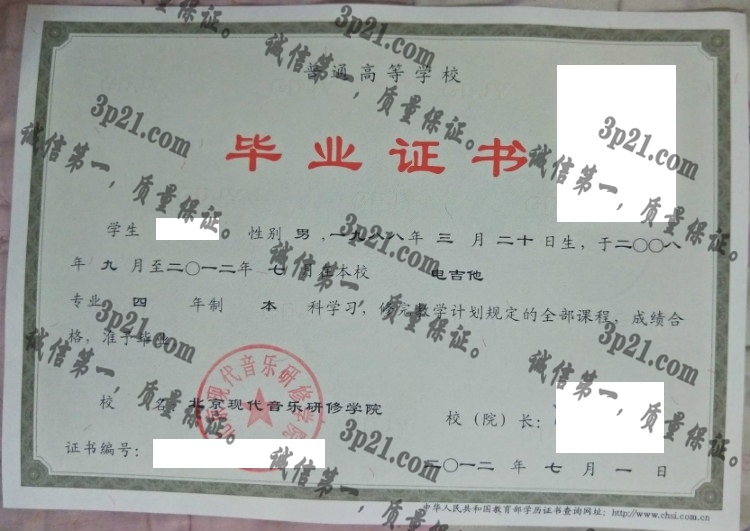 普通高等学校
毕业证书
学生 性别 男，一九八八年 三 月 二十 日生，于二〇〇八
年 九 月至二〇一二年 七 月在本校 电吉他
专业 四 年制 本 科学习，修完教学计划规定的全部课程，成绩合
格，准予毕业。
校 名 北京现代音乐研修学院 校（院）长：
证书编号： 二〇一二 年 七 月 一 日
中华人民共和国教育部学历证书查询网址：http://www.chsi.com.cn
北京现代音乐研修学院
3p21.com
诚信第一，质量保证。
3p21.com
诚信第一，质量保证。
3p21.com
诚信第一，质量保证。
3p21.com
诚信第一，质量保证。
3p21.com
诚信第一，质量保证。
3p21.com
诚信第一，质量保证。
3p21.com
诚信第一，质量保证。
3p21.com
诚信第一，质量保证。
质量保证。